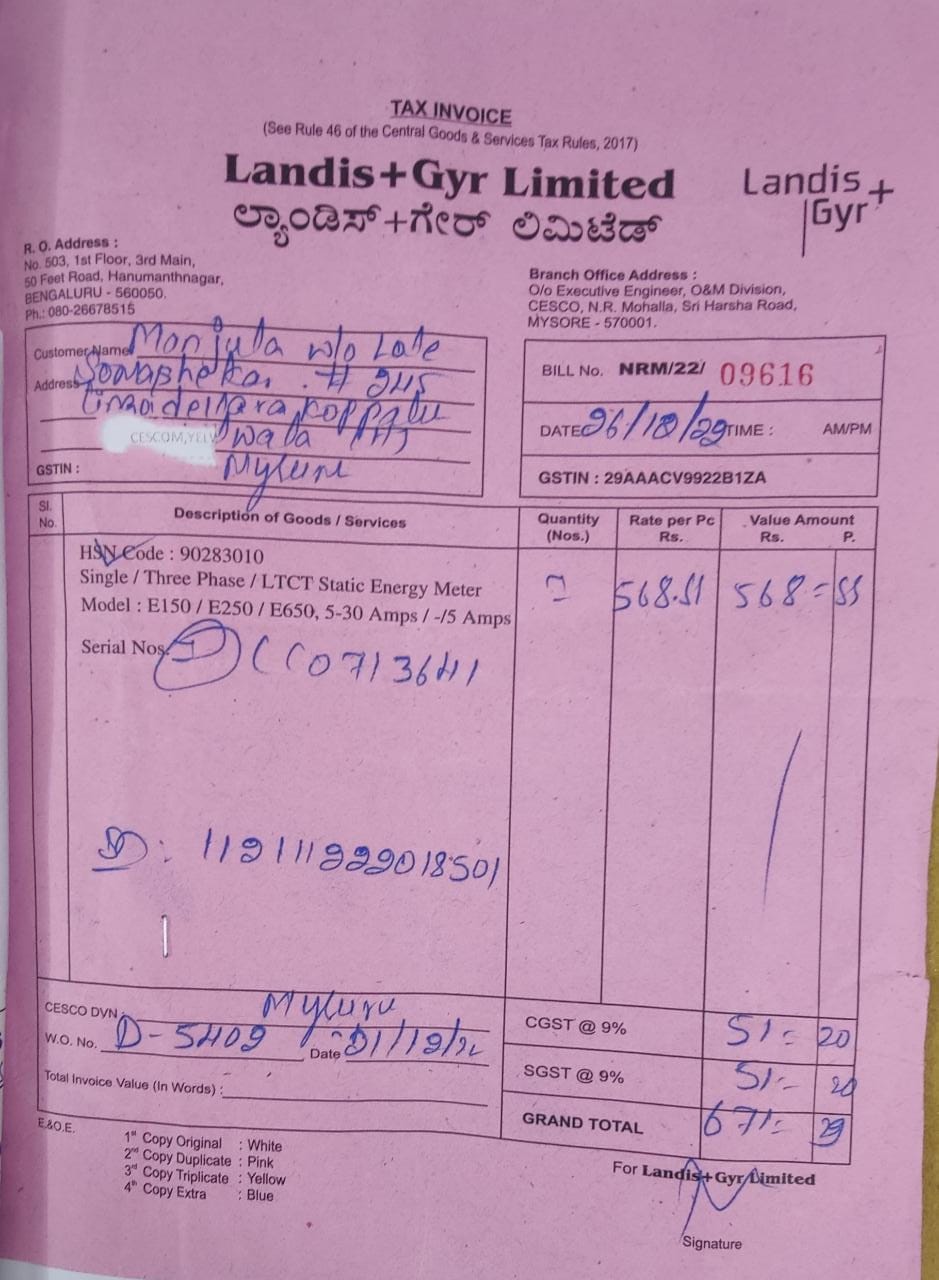 TAX INVOICE
(See Rule 46 of the Central Goods & Services Tax Rules, 2017)
Landis+Gyr Limited
Landis+
Gyr
ಲ್ಯಾಂಡಿಸ್+ಗೇರ್ ಲಿಮಿಟೆಡ್
R. O. Address :
No. 503, 1st Floor, 3rd Main,
50 Feet Road, Hanumanthnagar,
BENGALURU - 560050.
Ph.: 080-26678515
Branch Office Address :
O/o Executive Engineer, O&M Division,
CESCO, N.R. Mohalla, Sri Harsha Road,
MYSORE - 570001.
Customer Name Manjula w/o Late
Address # 245
koppalu
CESCOM,YELW
GSTIN : Mysuru
BILL No. NRM/22/ 09616
DATE 26/12/22 TIME : AM/PM
GSTIN : 29AAACV9922B1ZA
Sl. No. Description of Goods / Services Quantity (Nos.) Rate per Pc Rs. Value Amount Rs. P.
HSN Code : 90283010
Single / Three Phase / LTCT Static Energy Meter 568.51 568=55
Model : E150 / E250 / E650, 5-30 Amps / -/5 Amps
Serial Nos. CC0713641
D: 11211122018501
CESCO DVN : Mysuru
W.O. No. D-5409 Date
Total Invoice Value (In Words) :
CGST @ 9% 51=20
SGST @ 9% 51=20
GRAND TOTAL 671=
E.&O.E.
1st Copy Original : White
2nd Copy Duplicate : Pink
3rd Copy Triplicate : Yellow
4th Copy Extra : Blue
For Landis+Gyr Limited
Signature